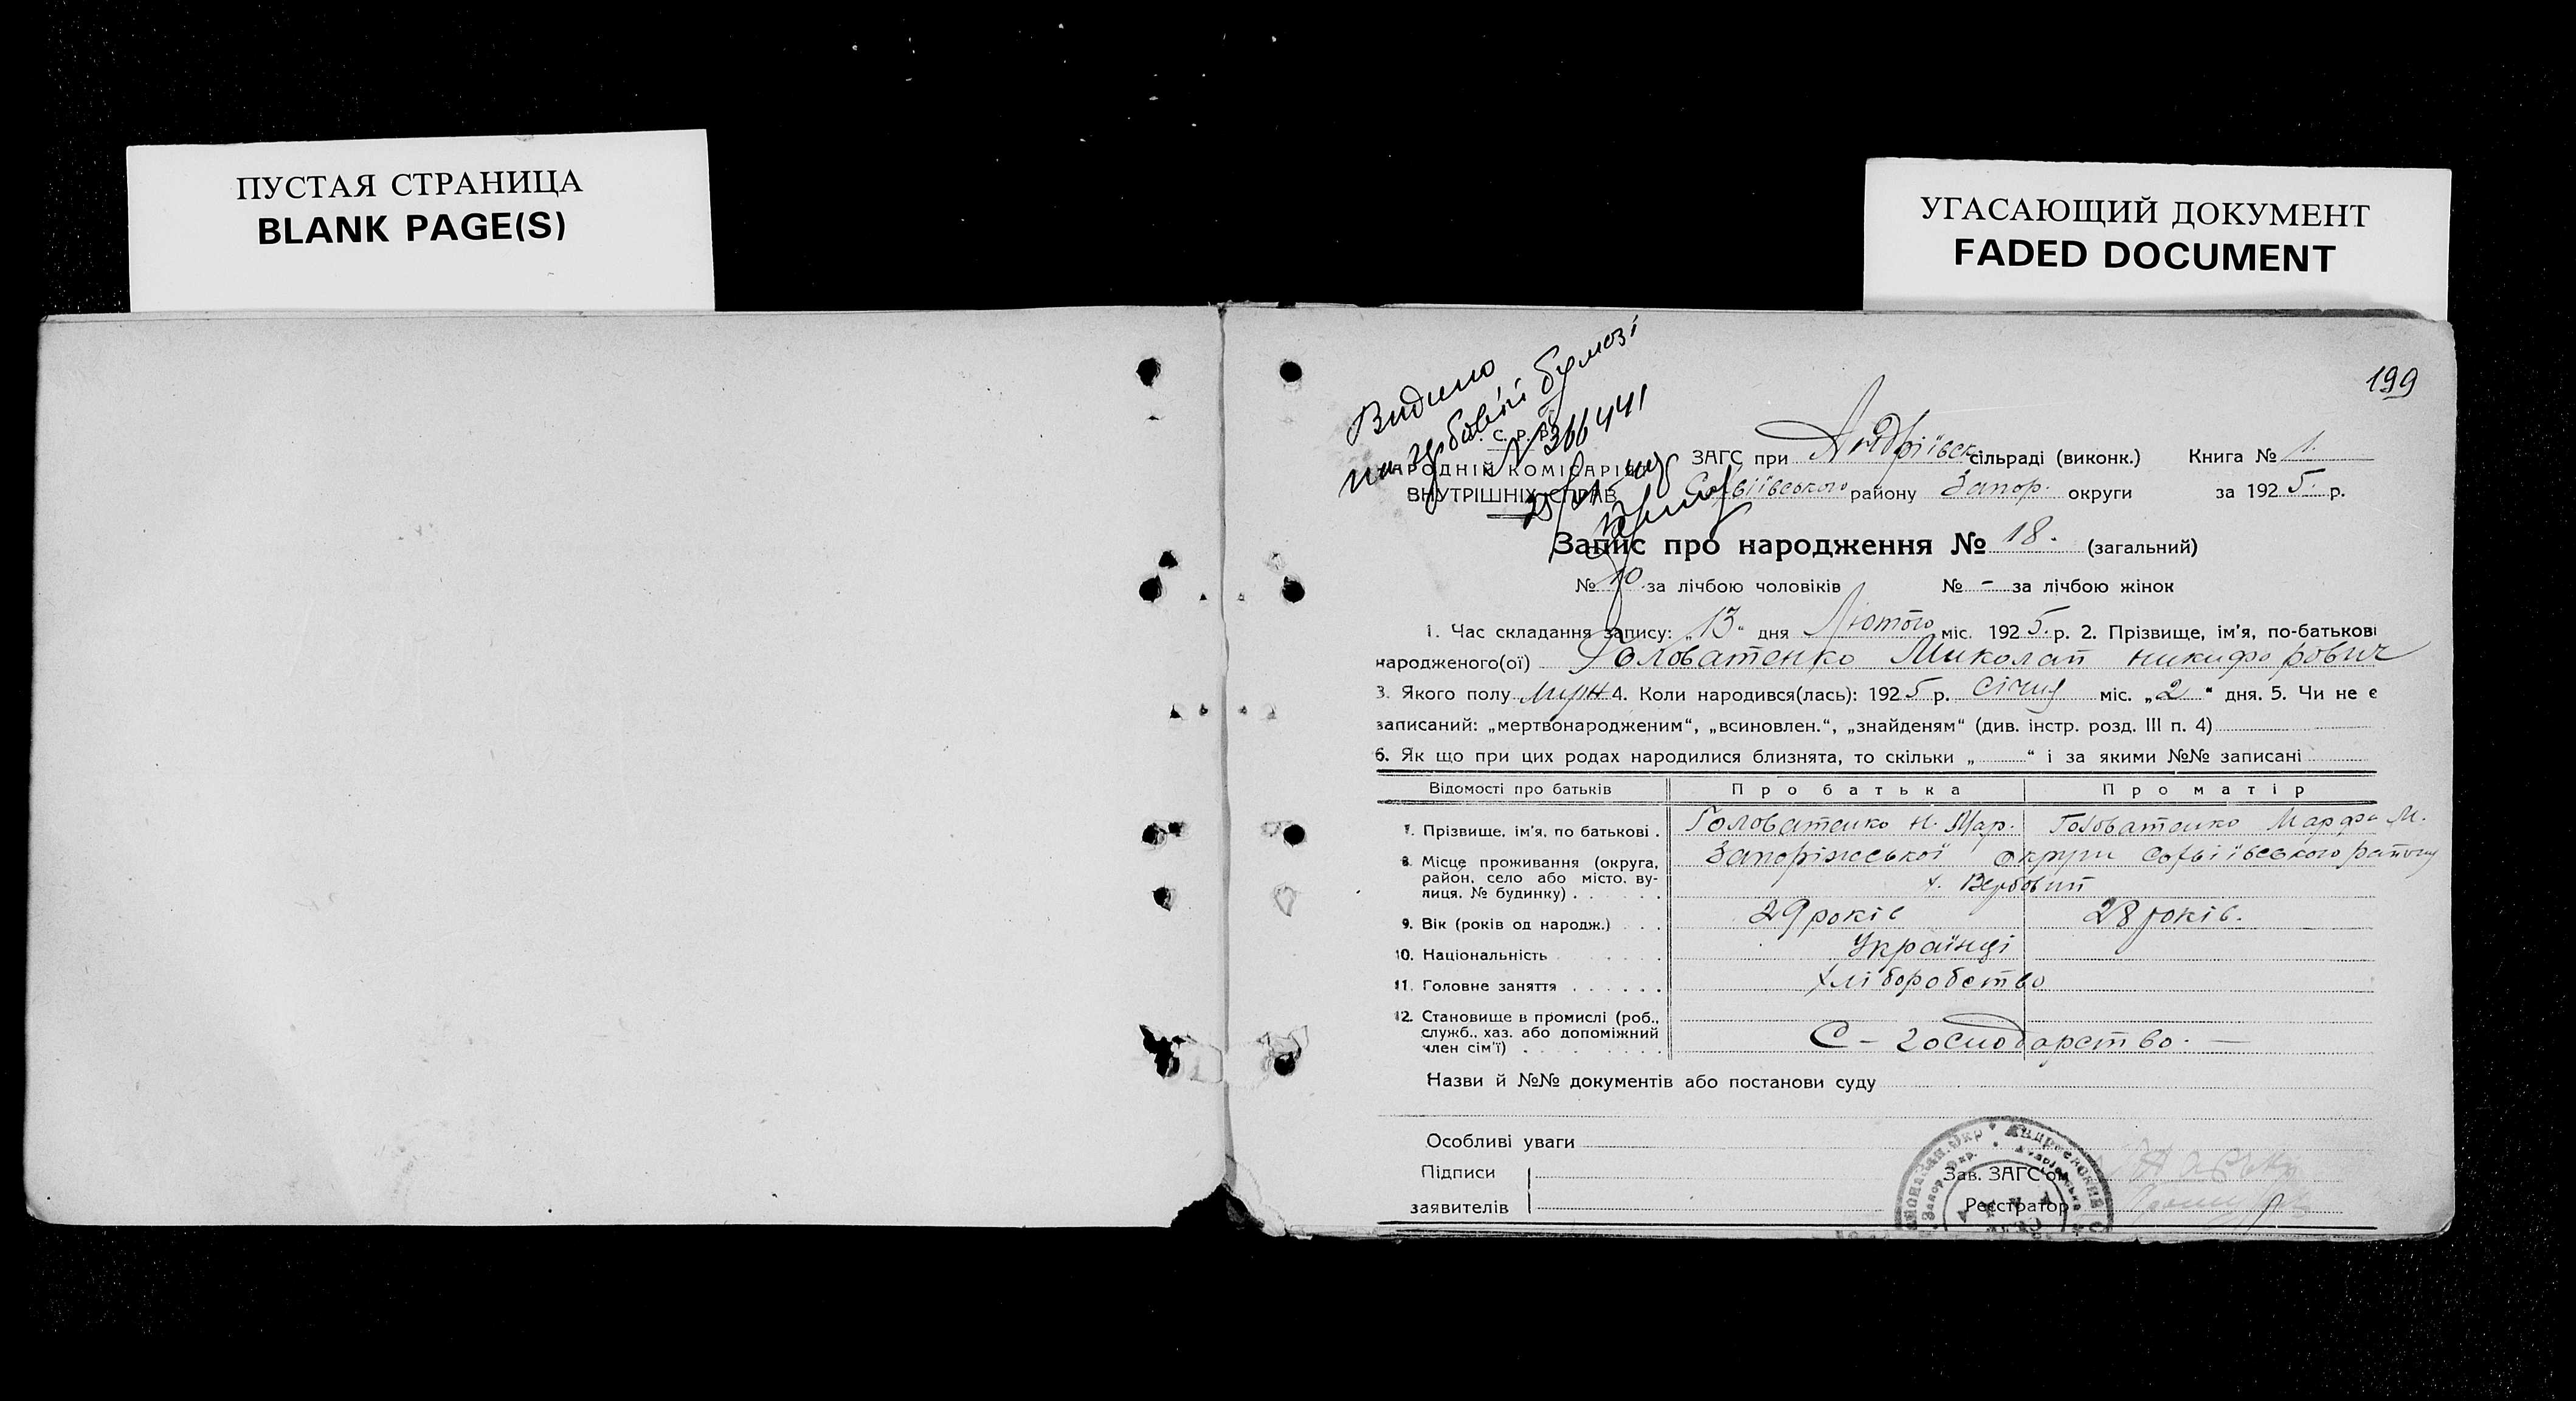 ПУСТАЯ СТРАНИЦА
BLANK PAGE(S)
УГАСАЮЩИЙ ДОКУМЕНТ
FADED DOCUMENT
199
Видано
на гербовій бумозі
N 366441
С. Р. Р.
НАРОДНІЙ КОМІСАРІЯТ
ВНУТРІШНІХ СПРАВ
ЗАГС при Андріївск сільраді (виконк.) Книга № 1.
Софіївського району Запор. округи за 1925. р.
Запис про народження № 18. (загальний)
№ 10 за лічбою чоловіків № - за лічбою жінок
1. Час складання запису: „13“ дня Лютого міс. 1925. р. 2. Прізвище, ім'я, по-батькові
народженого(ої) Головатенко Миколай никифорович
3. Якого полу муж 4. Коли народився(лась): 1925 р. Січня міс. „2“ дня. 5. Чи не є
записаний: „мертвонародженим“, „всиновлен.“, „знайденям“ (див. інстр. розд. III п. 4)
6. Як що при цих родах народилися близнята, то скільки „ “ і за якими №№ записані
Відомості про батьків Про батька Про матір
7. Прізвище, ім'я, по батькові . Головатенко Н. Мар. Головатенко Марфа М.
8. Місце проживання (округа, район, село або місто, вулиця, № будинку) Запоріжської округи Софіївського району
х. Вербовий
9. Вік (років од народж.) 29 років 28 років.
10. Національність Українці
11. Головне заняття хліборобство
12. Становище в промислі (роб., служб., хаз. або допоміжний член сім'ї) С - господарство. -
Назви й №№ документів або постанови суду
Особливі уваги
Підписи
заявителів
Зав. ЗАГС'ом
Реєстратор